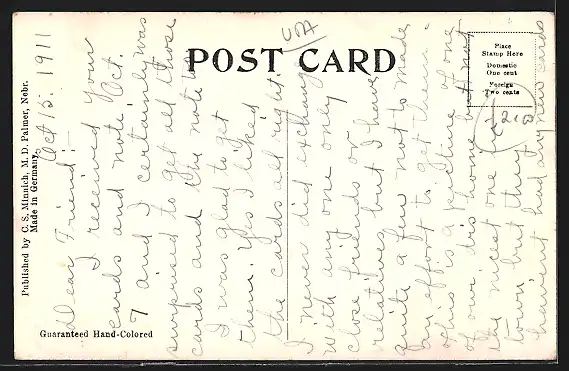 POST CARD
Place
Stamp Here
Domestic
One cent
Foreign
Two cents
Published by C. S. Minnich, M. D. Palmer, Nebr.
Made in Germany.
Guaranteed Hand-Colored
Oct 15. 1911
Dear Friend:-
I received your
cards and note Oct.
7 and I certainly was
surprised to get all those
cards and the note to
I was glad to get
them. Yes I liked
the cards all right.
I never did exchange
with any one only
close friends or
relatives but I have
quite a few not to make
an effort to get them.
this is a picture of one
of our dis home but not
the nicest one in
town but they
haven't had any new cards